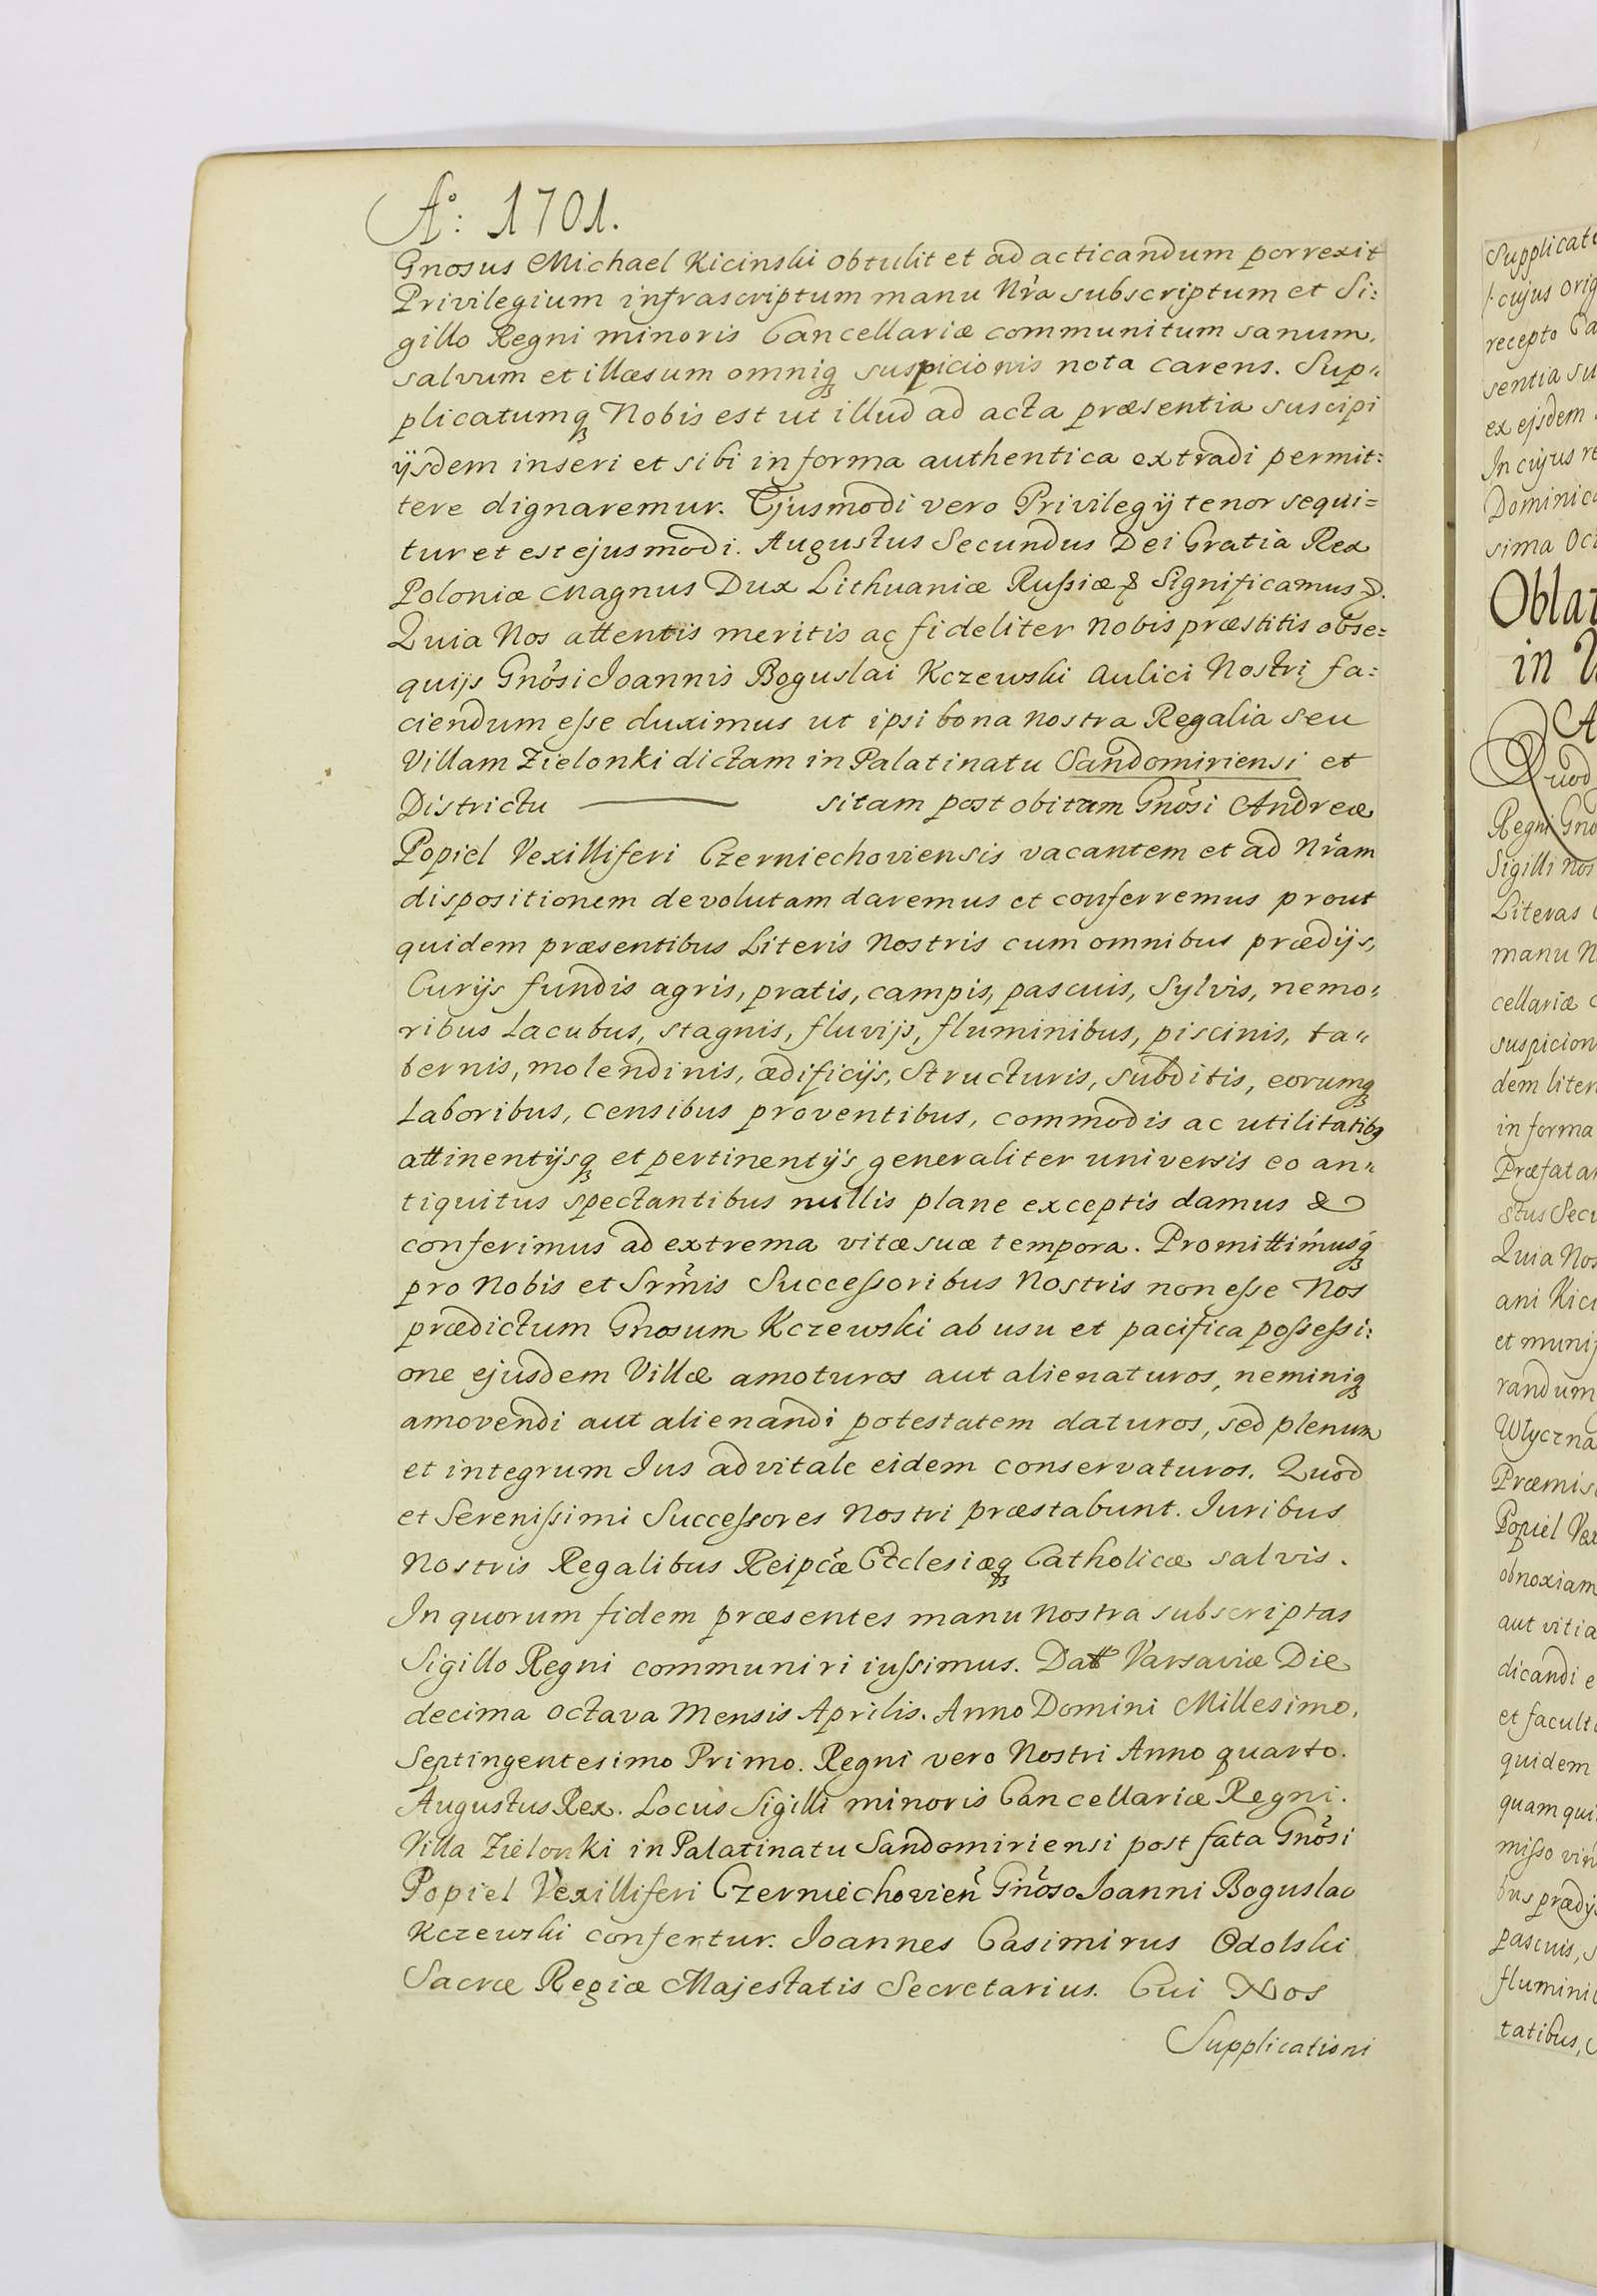 Aº: 1701.
Gnosus Michael Kicinski obtulit et ad acticandum porrexit
Privilegium infrascriptum manu Nr̃a subscriptum et Si:
gillo Regni minoris Cancellariæ communitum sanum,
salvum et illæsum omniq́ꝫ suspicionis nota carens. Sup„
plicatumqꝫ Nobis est ut illud ad acta præsentia suscipi
ijsdem inseri et sibi in forma authentica extradi permit:
tere dignaremur. Ejusmodi vero Privilegij tenor sequi=
tur et est ejusmodi. Augustus Secundus Dei Gratia Rex
Poloniæ Magnus Dux Lithuaniæ Rußiæ & Significamus &.
Quia Nos attentis meritis ac fideliter Nobis præstitis obse=
quijs Gnõsi Joannis Boguslai Kczewski Aulici Nostri fa:
ciendum eße duximus ut ipsi bona nostra Regalia seu
Villam Zielonki dictam in Palatinatu Sandomiriensi et
Districtu ——— sitam post obitum Gnõsi Andreæ
Popiel Vexilliferi Czerniechoviensis vacantem et ad Nr̃am
dispositionem devolutam daremus et conferremus prout
quidem præsentibus Literis Nostris cum omnibus prædijs,
Curijs fundis agris, pratis, campis, pascuis, Sylvis, nemo„
ribus Lacubus, stagnis, fluvijs, fluminibus, piscinis, ta„
bernis, molendinis, ædificijs, Structuris, subditis, eorumqꝫ
Laboribus, Censibus proventibus, commodis ac utilitatibꝯ
attinentijsqꝫ et pertinentijs generaliter universis eo an„
tiquitus spectantibus nullis plane exceptis damus &
conferimus ad extrema vitæ suæ tempora. Promittimusqꝫ
pro Nobis et Srm̃is Succeßoribus Nostris non eße Nos
prædictum Gnosum Kczewski ab usu et pacifica poßeßi:
one ejusdem Villæ amoturos aut alienaturos, neminiqꝫ
amovendi aut alienandi potestatem daturos, sed plenum
et integrum Jus advitale eidem conservaturos. Quod
et Sereniß́imi Succeßores Nostri præstabunt. Juribus
Nostris Regalibus Reipc̃æ Ecclesiæqꝫ Catholicæ salvis.
In quorum fidem præsentes manu nostra subscriptas
Sigillo Regni communiri iußimus. Datt Varsaviæ Die
decima octava Mensis Aprilis. Anno Domini Millesimo,
Septingentesimo Primo. Regni vero Nostri Anno quarto.
Augustus Rex. Locus Sigilli minoris Cancellariæ Regni.
Villa Zielonki in Palatinatu Sandomiriensi post fata Gnõsi
Popiel Vexilliferi Czerniechovien̄ Gnõso Joanni Boguslao
Kczewski confertur. Joannes Casimirus Odolski
Sacræ Regiæ Majestatis Secretarius. Cui Nos
Supplicationi
recepto
sentia
ex ejsdem
In cujus
sima
in
Regni
Sigilli
Literas
manu
cellariæ
dem
in forma
Quia
ani
randum
Popiel
obnoxiam
aut
dicandi
quidem
quam
mißo
pascuis,
tatibus,